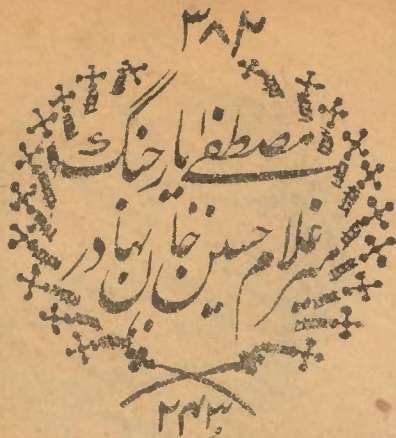 ۳۸۴
مصطفےٰ یار جنگ
میر غلام حسین خان بہادر
۲۴۳